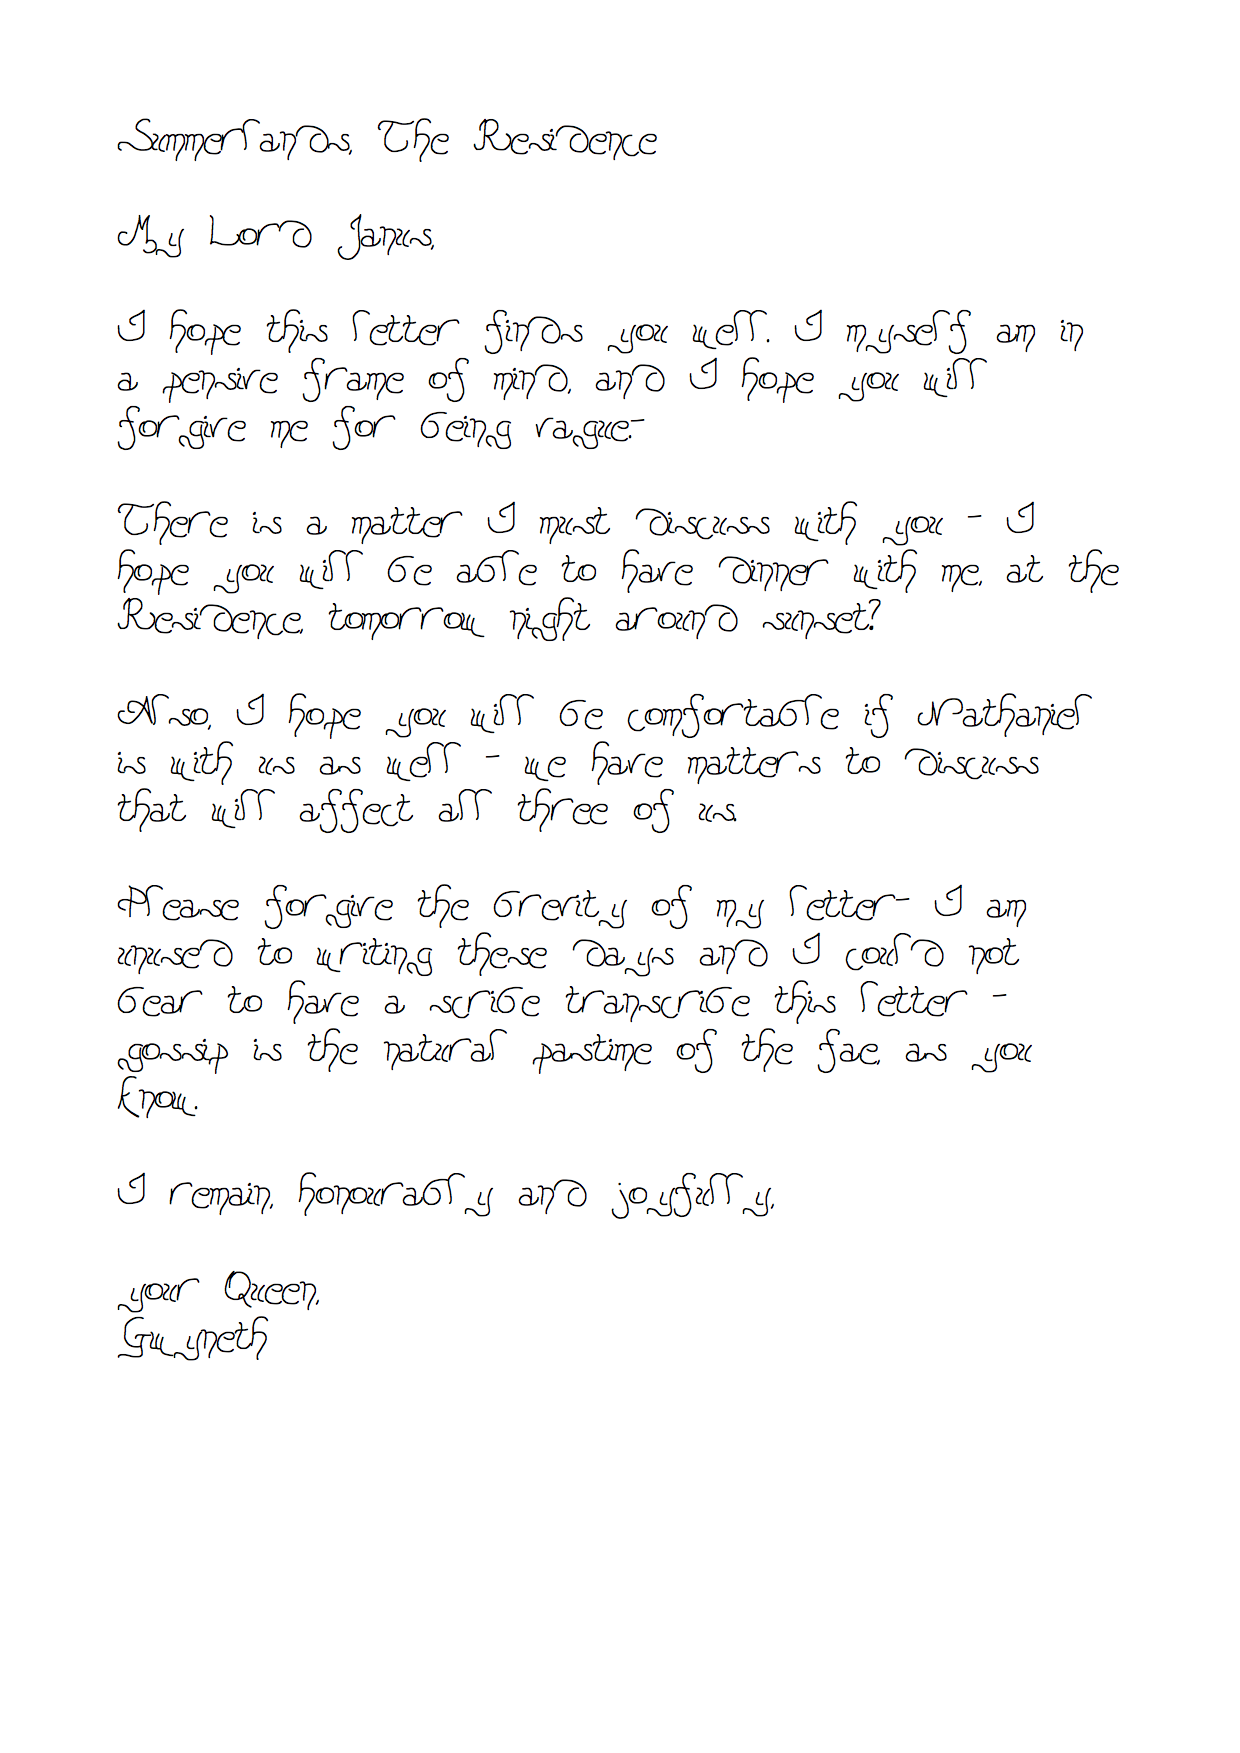 Summerlands, The Residence
My Lord Janus,
I hope this letter finds you well. I myself am in
a pensive frame of mind, and I hope you will
forgive me for being vague.-
There is a matter I must discuss with you - I
hope you will be able to have dinner with me, at the
Residence, tomorrow night around sunset?
Also, I hope you will be comfortable if Nathaniel
is with us as well - we have matters to discuss
that will affect all three of us.
Please forgive the brevity of my letter- I am
unused to writing these days and I could not
bear to have a scribe transcribe this letter -
gossip is the natural pastime of the fae, as you
know.
I remain, honourably and joyfully,
your Queen,
Gwyneth